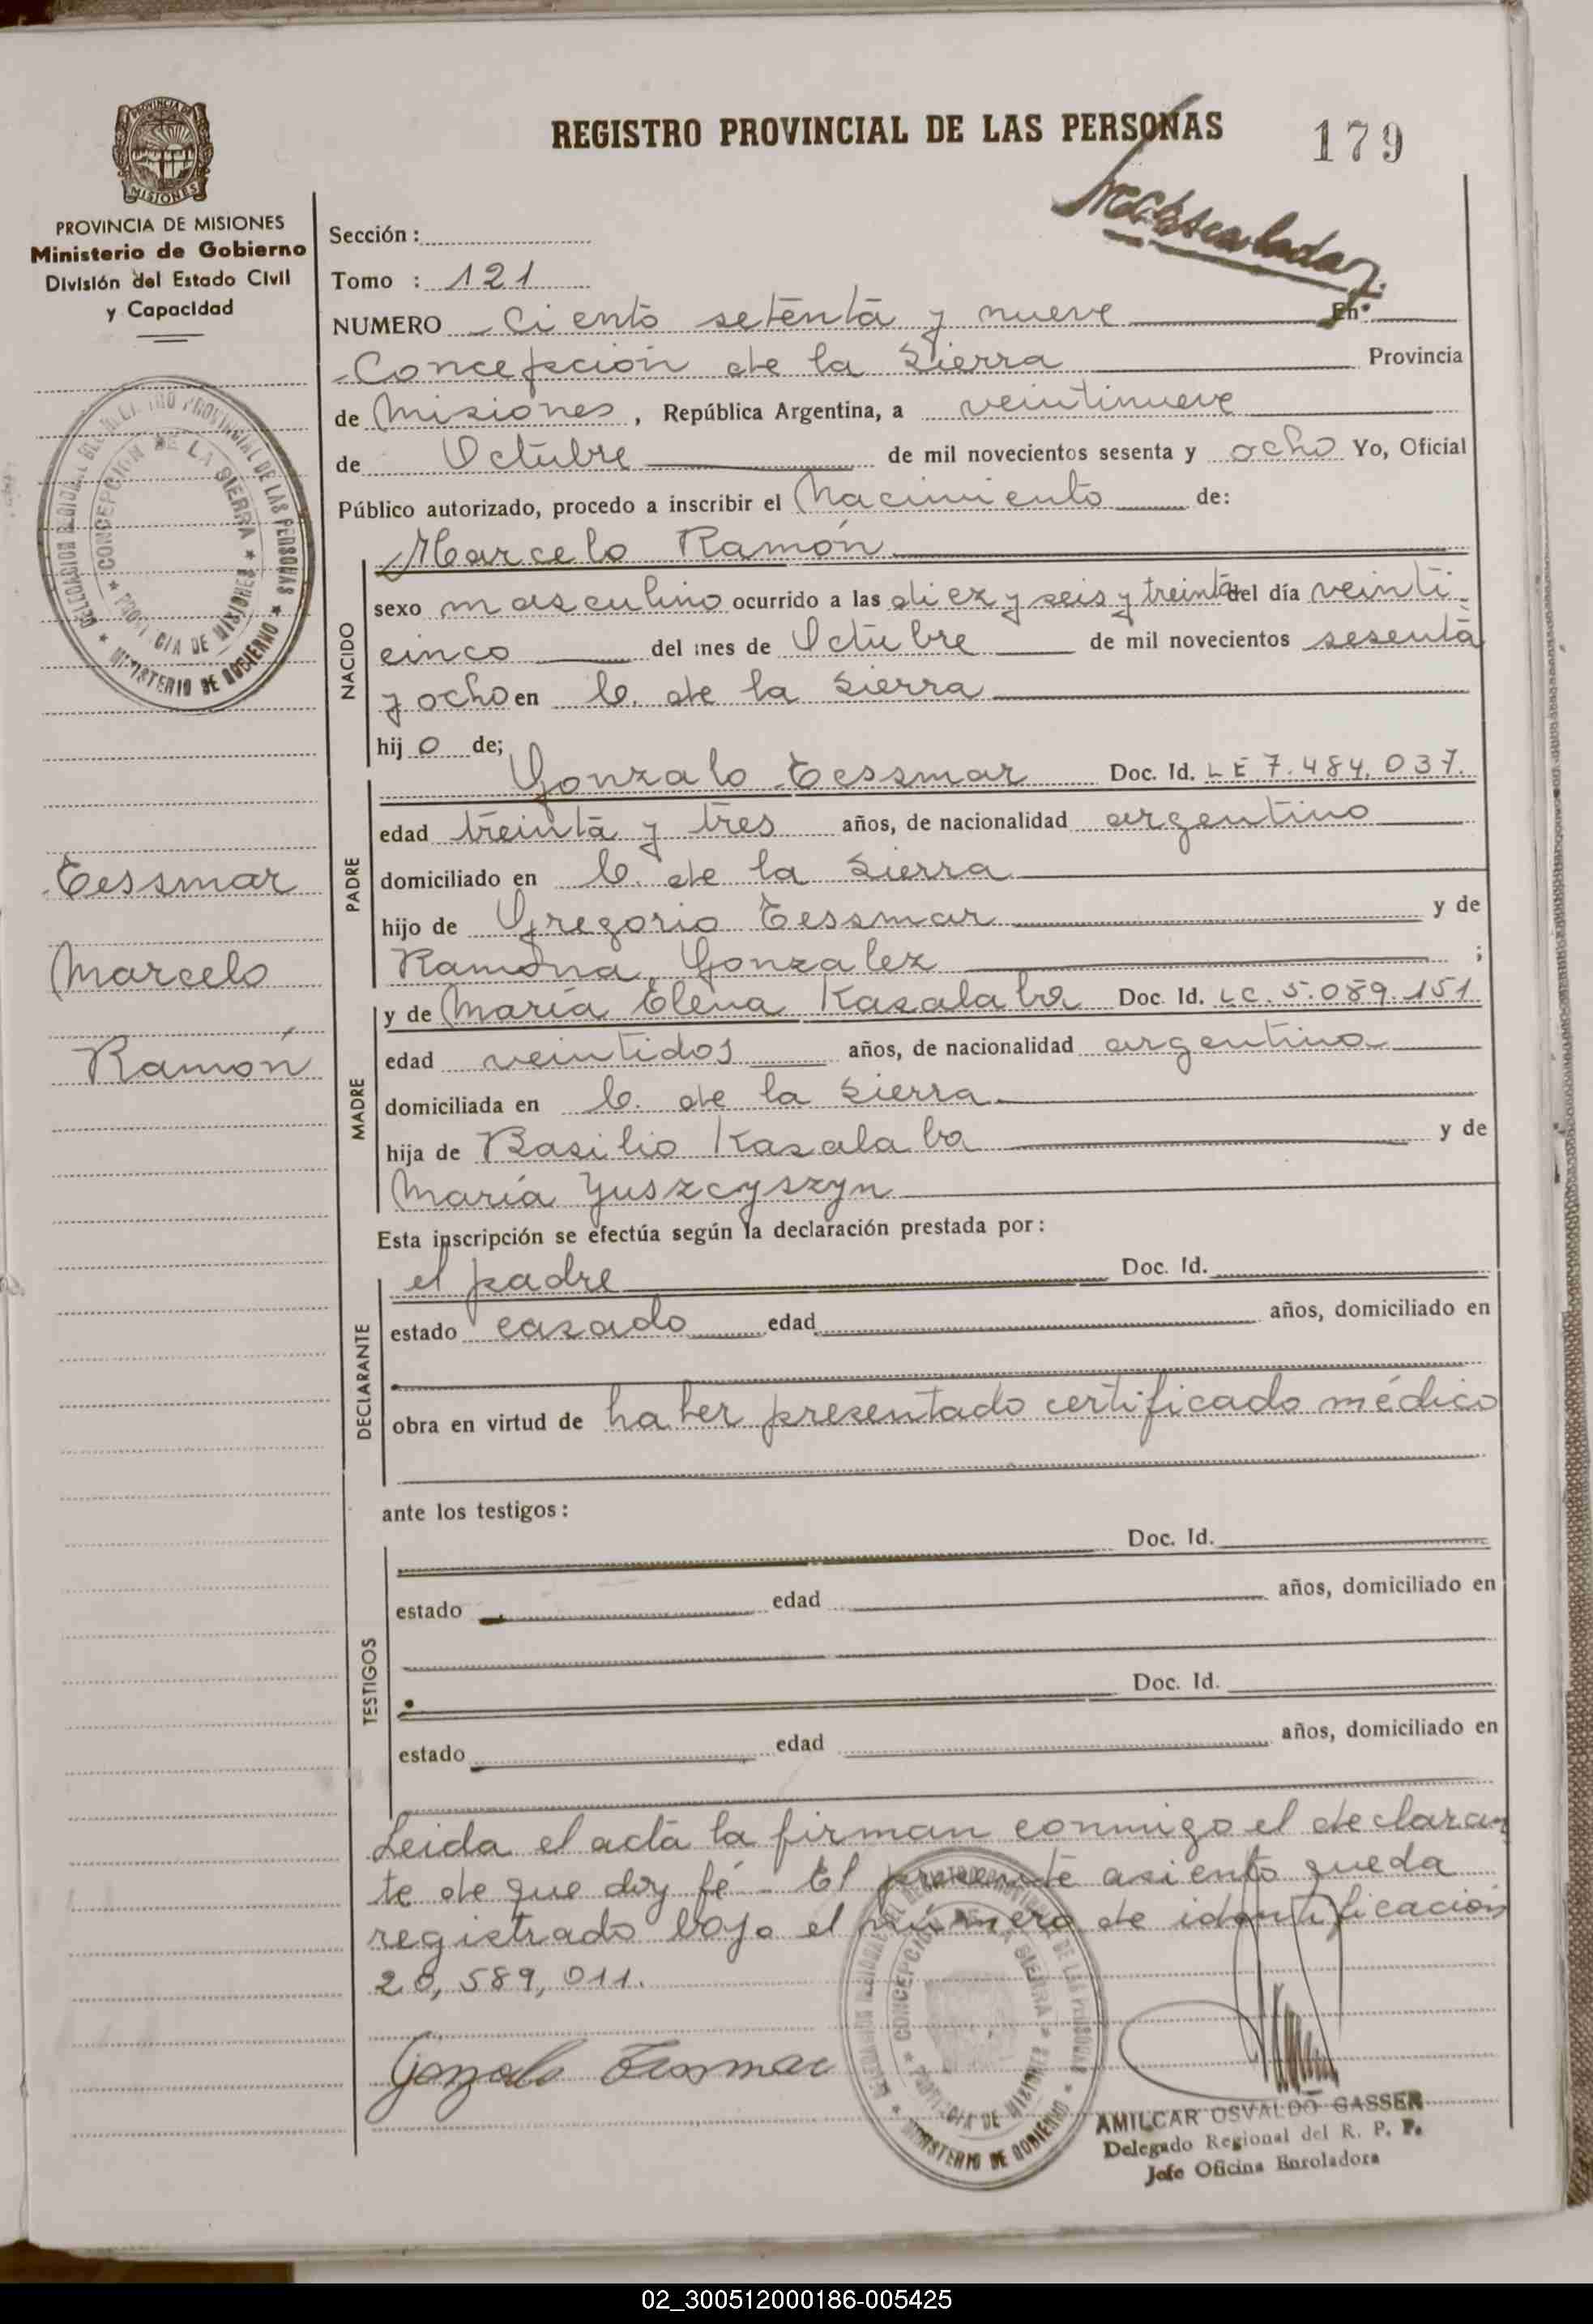 REGISTRO PROVINCIAL DE LAS PERSONAS
179
PROVINCIA DE MISIONES
Ministerio de Gobierno
División del Estado Civil
y Capacidad
Sección :
Tomo : 121
NUMERO Ciento setenta y nueve En
Concepción de la Sierra Provincia
de Misiones , República Argentina, a veintinueve
de Octubre de mil novecientos sesenta y ocho Yo, Oficial
Público autorizado, procedo a inscribir el Nacimiento de:
NACIDO
Marcelo Ramón
sexo masculino ocurrido a las diez y seis y treinta del día veinti-
cinco del mes de Octubre de mil novecientos sesenta
y ocho en C. de la Sierra
hij o de;
PADRE
Gonzalo Tessmar Doc. Id. LE 7.484.037.
edad treinta y tres años, de nacionalidad argentino
domiciliado en C. de la Sierra
hijo de Gregorio Tessmar y de
Ramona Gonzalez ;
MADRE
y de María Elena Kasalaba Doc. Id. LC. 5.089.151
edad veintidos años, de nacionalidad argentina
domiciliada en C. de la Sierra
hija de Basilio Kasalaba y de
María Yuszcyszyn
Tessmar
Marcelo
Ramón
Esta inscripción se efectúa según la declaración prestada por :
DECLARANTE
el padre Doc. Id.
estado casado edad años, domiciliado en
obra en virtud de haber presentado certificado médico
ante los testigos :
TESTIGOS
Doc. Id.
estado edad años, domiciliado en
Doc. Id.
estado edad años, domiciliado en
Leida el acta la firman conmigo el declaran
te de que doy fé - El presente asiento queda
registrado bajo el número de identificación
20,589,011.
Gonzalo Tessmar
CONCEPCION DE LA SIERRA
PROVINCIA DE MISIONES
MINISTERIO DE GOBIERNO
AMILCAR OSVALDO GASSER
Delegado Regional del R. P. P.
Jefe Oficina Enroladora
02_300512000186-005425